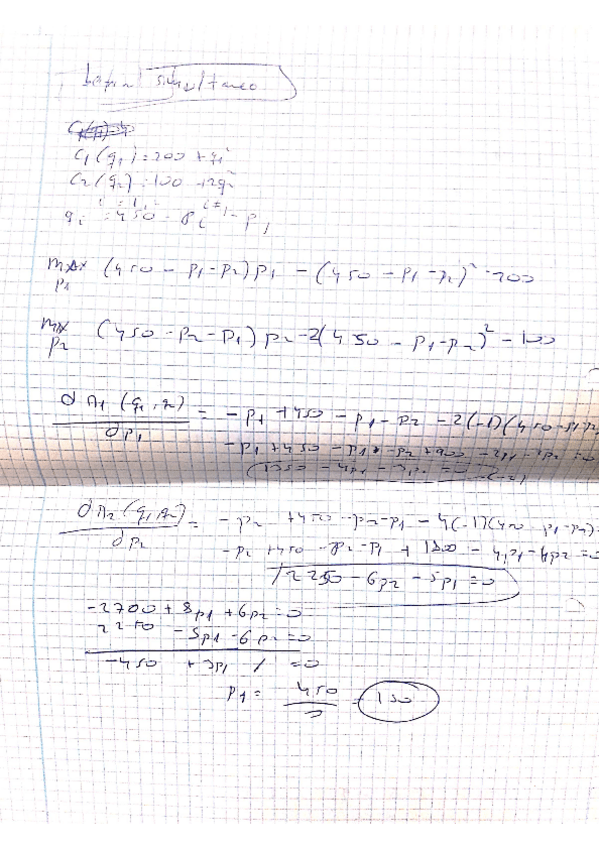 simultaneo
C₁(q₁) = 200 + q₁²
C₂(q₂) = 100 + 2q²
i = 1, i ≠ j
qᵢ = 450 - pᵢ - pⱼ
max p₁ (450 - p₁ - p₂) p₁ - (450 - p₁ - p₂)² - 200
max p₂ (450 - p₂ - p₁) p₂ - 2(450 - p₁ - p₂)² - 100
dπ₁(q₁,q₂)/dp₁ = -p₁ + 450 - p₁ - p₂ - 2(-1)(450 - p₁ - p₂
-p₁ + 450 - p₁ - p₂ + 900 - 2p₁ - 2p₂ = 0
1350 - 4p₁ - 3p₂ = 0 (-2)
dπ₂(q₁,q₂)/dp₂ = -p₂ + 450 - p₂ - p₁ - 4(-1)(450 - p₁ - p₂)
-p₂ + 450 - p₂ - p₁ + 1800 - 4p₁ - 4p₂ = 0
2250 - 6p₂ - 5p₁ = 0
-2700 + 8p₁ + 6p₂ = 0
2250 - 5p₁ - 6p₂ = 0
-450 + 3p₁ / = 0
p₁ = 450/3 = 150